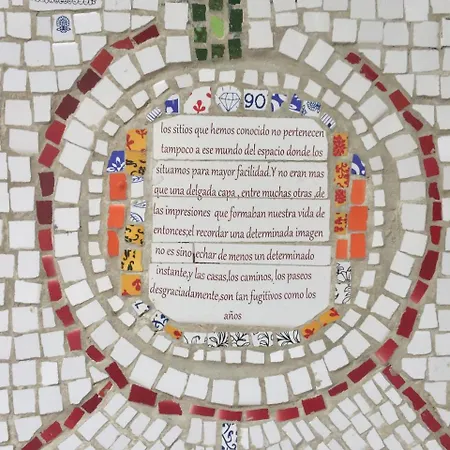 90
los sitios que hemos conocido no pertenecen
tampoco a ese mundo del espacio donde los
situamos para mayor facilidad.Y no eran mas
que una delgada capa , entre muchas otras ,de
las impresiones que formaban nuestra vida de
entonces;el recordar una determinada imagen
no es sino echar de menos un determinado
instante,y las casas,los caminos, los paseos
desgraciadamente,son tan fugitivos como los
años